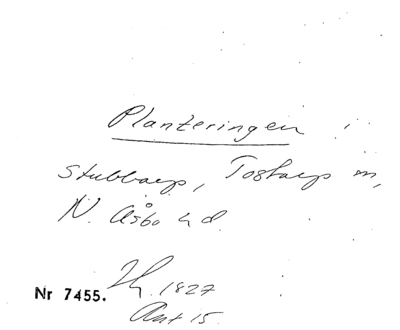 Planteringen
Stubbarp, Tostarp sn,
N. Åsbo hd.
Nr 7455. 1827
Ant 15.